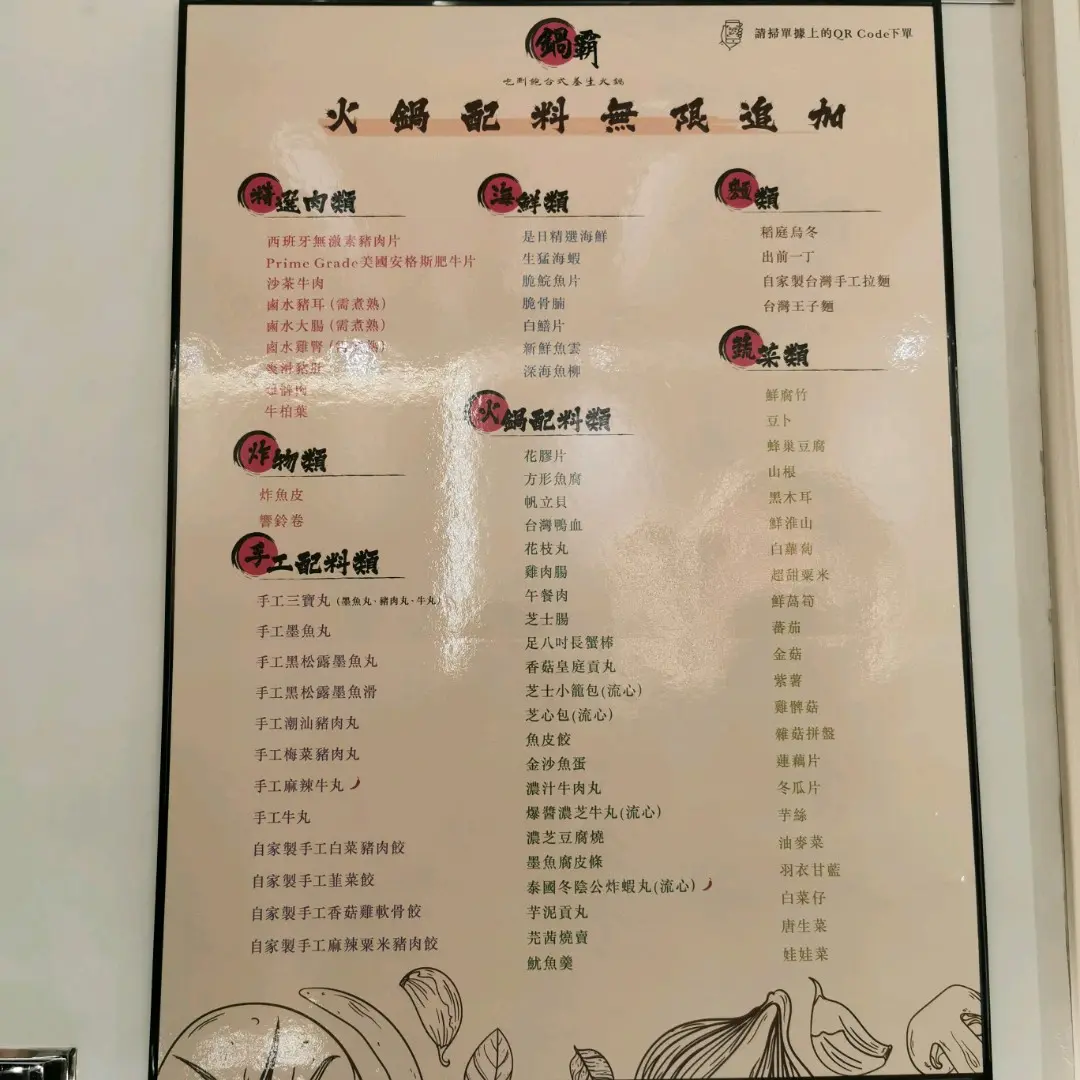 鍋霸
請掃單據上的QR Code下單
吃到飽台式養生火鍋
火鍋配料無限追加
精選肉類
西班牙無激素豬肉片
Prime Grade美國安格斯肥牛片
沙茶牛肉
鹵水豬耳(需煮熟)
鹵水大腸(需煮熟)
鹵水雞腎(需煮熟)
牛柏葉
炸物類
炸魚皮
響鈴卷
手工配料類
手工三寶丸(墨魚丸、豬肉丸、牛丸)
手工墨魚丸
手工黑松露墨魚丸
手工黑松露墨魚滑
手工潮汕豬肉丸
手工梅菜豬肉丸
手工麻辣牛丸
手工牛丸
自家製手工白菜豬肉餃
自家製手工韮菜餃
自家製手工香菇雞軟骨餃
自家製手工麻辣粟米豬肉餃
海鮮類
是日精選海鮮
生猛海蝦
脆鯇魚片
脆骨腩
白鱔片
新鮮魚雲
深海魚柳
火鍋配料類
花膠片
方形魚腐
帆立貝
台灣鴨血
花枝丸
雞肉腸
午餐肉
芝士腸
足八吋長蟹棒
香菇皇庭貢丸
芝士小籠包(流心)
芝心包(流心)
魚皮餃
金沙魚蛋
濃汁牛肉丸
爆醬濃芝牛丸(流心)
濃芝豆腐燒
墨魚腐皮條
泰國冬陰公炸蝦丸(流心)
芋泥貢丸
芫茜燒賣
魷魚羹
麵類
稻庭烏冬
出前一丁
自家製台灣手工拉麵
台灣王子麵
蔬菜類
鮮腐竹
豆卜
蜂巢豆腐
山根
黑木耳
鮮淮山
白蘿蔔
超甜粟米
鮮萵筍
蕃茄
金菇
紫薯
雞髀菇
雜菇拼盤
蓮藕片
冬瓜片
芋絲
油麥菜
羽衣甘藍
白菜仔
唐生菜
娃娃菜